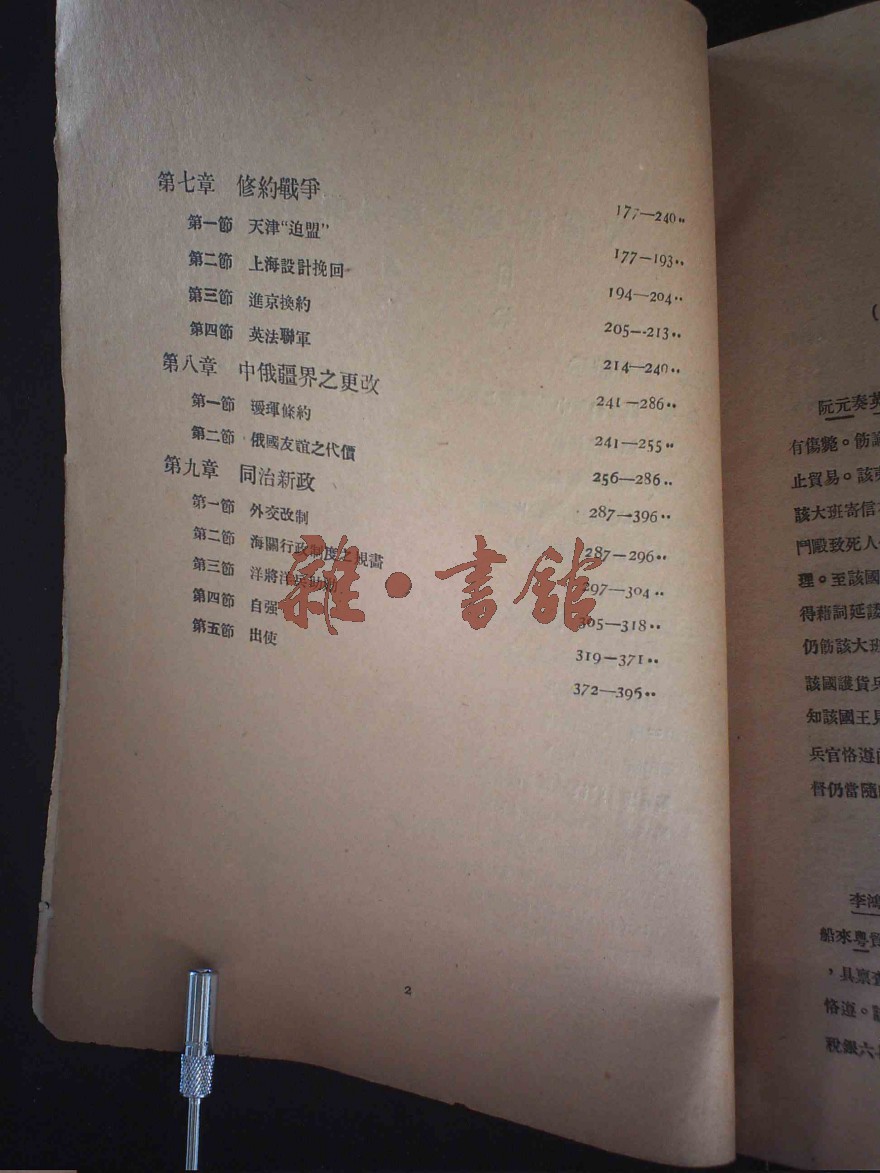 第七章 修約戰爭 177—240‥
第一節 天津“迫盟” 177—193‥
第二節 上海設計挽回 194—204‥
第三節 進京換約 205—213‥
第四節 英法聯軍 214—240‥
第八章 中俄疆界之更改 241—286‥
第一節 璦琿條約 241—255‥
第二節 俄國友誼之代價 256—286‥
第九章 同治新政 287—396‥
第一節 外交改制 287—296‥
第二節 海關行政制度之規畫 297—304‥
第三節 洋將洋兵助 305—318‥
第四節 自强 319—371‥
第五節 出使 372—396‥
雜·書館
2
(
阮元奏英
有傷斃。飭
止貿易。該
該大班寄信
鬥毆致死人
理。至該國
得藉詞延諉
仍飭該大班
該國護貨兵
知該國王
兵官恪遵
督仍當隨
李鴻
船來粵
，具稟
恪遵。
稅銀六